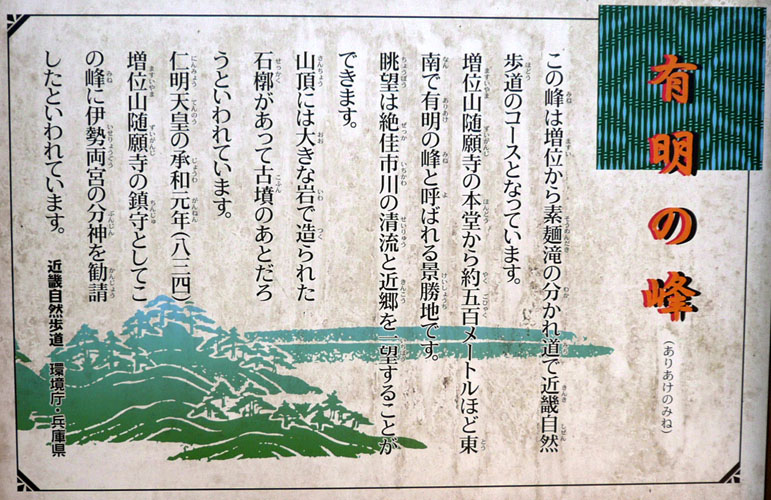 有明の峰
(ありあけのみね)
この峰は増位から素麺滝の分かれ道で近畿自然
歩道のコースとなっています。
増位山随願寺の本堂から約五百メートルほど東
南で有明の峰と呼ばれる景勝地です。
眺望は絶佳市川の清流と近郷を一望することが
できます。
山頂には大きな岩で造られた
石槨があって古墳のあとだろ
うといわれています。
仁明天皇の承和元年(八三四)
増位山随願寺の鎮守としてこ
の峰に伊勢両宮の分神を勧請
したといわれています。
近畿自然歩道 環境庁・兵庫県